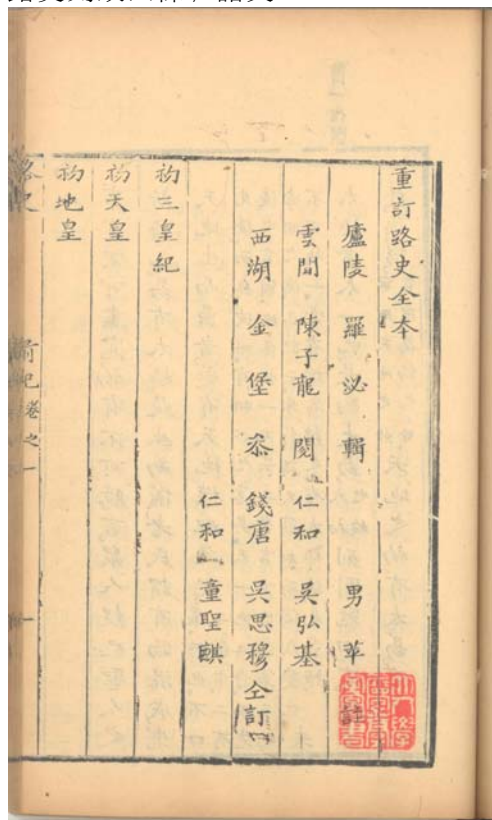 重訂路史全本
廬陵 羅泌 輯 男 苹 註
雲間 陳子龍 閱 仁和 吳弘基
西湖 金堡 叅 錢唐 吳思穆 仝訂
仁和 童聖麒
初三皇紀
初天皇
初地皇
路史 前紀卷之一 一